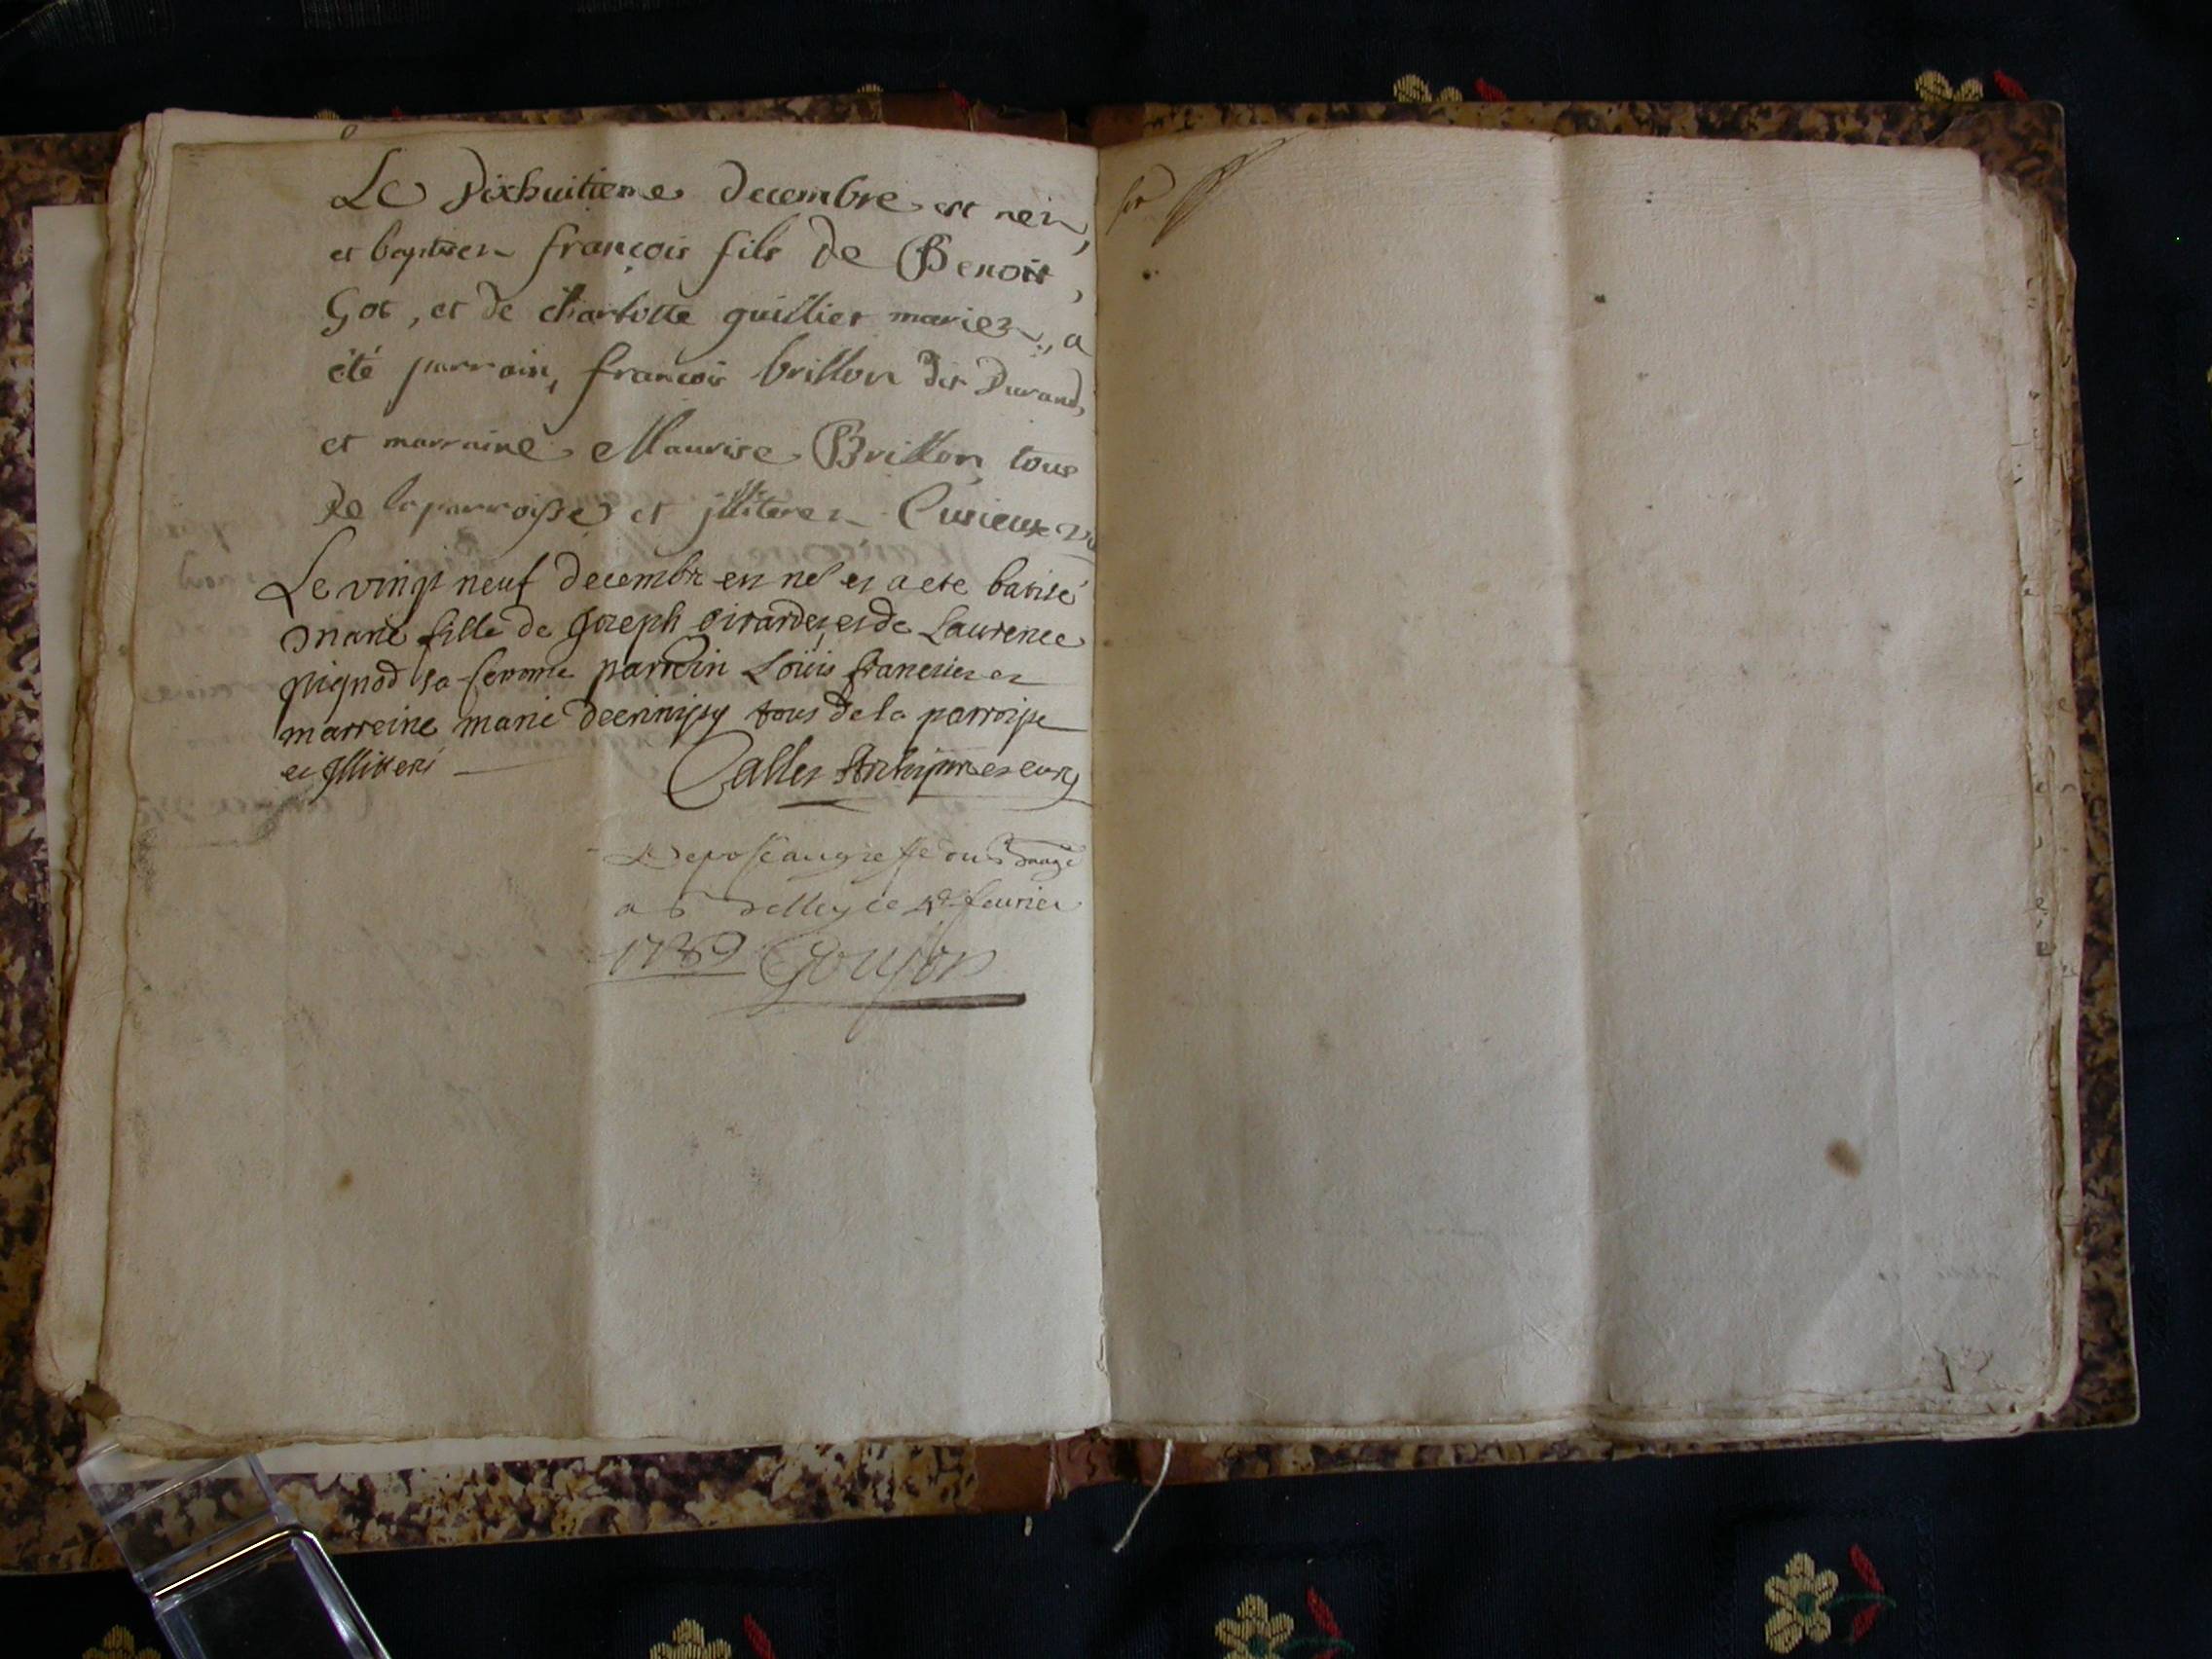 Le dixhuitieme decembre est nez,
et baptisez françois fils de Benoit,
Got, et de charlotte guillier mariez, a
été parrain, françois brillon dit Durand,
et marraine Maurise Brillon, tous
de la parroisse et illiterez Curieux
Le vingt neuf decembr est né et a ete batisé
marie fille de Joseph Girardet et de Laurence
pignod sa femme parrein Loüis
marreine marie tous de la parroisse
et illiteré Callet Archiprre et curé
Deposé au greffe du
a Belley le fevrier
1739 Goujon